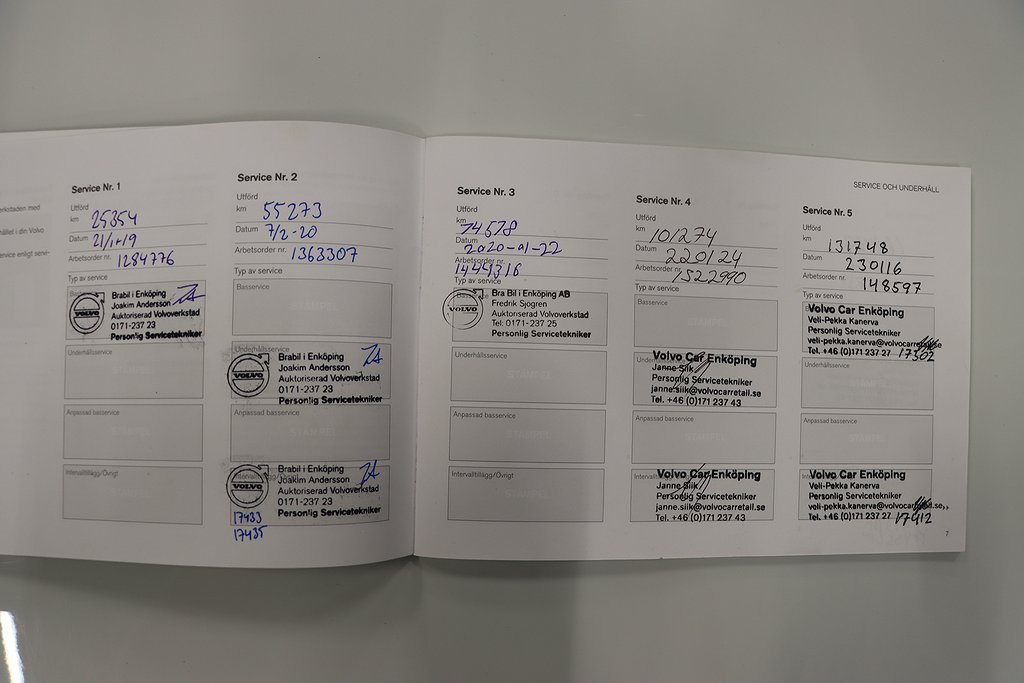 erkstaden med
hållet i din Volvo
ervice enligt servi-
Service Nr. 1
Utförd
km 25354
Datum 21/1-19
Arbetsorder nr. 1284776
Typ av service
VOLVO
Brabil i Enköping
Joakim Andersson
Auktoriserad Volvoverkstad
0171-237 23
Personlig Servicetekniker
Underhållsservice
STÄMPEL
Anpassad basservice
STÄMPEL
Intervalltillägg/Övrigt
Service Nr. 2
Utförd
km 55273
Datum 7/2-20
Arbetsorder nr. 1363307
Typ av service
Basservice
STÄMPEL
Underhållsservice
VOLVO
Brabil i Enköping
Joakim Andersson
Auktoriserad Volvoverkstad
0171-237 23
Personlig Servicetekniker
Anpassad basservice
STÄMPEL
Intervalltillägg/Övrigt
VOLVO
Brabil i Enköping
Joakim Andersson
Auktoriserad Volvoverkstad
0171-237 23
Personlig Servicetekniker
17433
17435
Service Nr. 3
Utförd
km 74578
Datum 2020-01-22
Arbetsorder nr. 1444316
Typ av service
VOLVO
Bra Bil i Enköping AB
Fredrik Sjögren
Auktoriserad Volvoverkstad
Tel: 0171-237 25
Personlig Servicetekniker
Underhållsservice
STÄMPEL
Anpassad basservice
STÄMPEL
Intervalltillägg/Övrigt
STÄMPEL
SERVICE OCH UNDERHÅLL
Service Nr. 4
Utförd
km 101274
Datum 220124
Arbetsorder nr. 1522990
Typ av service
Basservice
STÄMPEL
Volvo Car Enköping
Janne Siik
Personlig Servicetekniker
janne.siik@volvocarretail.se
Tel. +46 (0)171 237 43
Anpassad basservice
STÄMPEL
Volvo Car Enköping
Janne Siik
Personlig Servicetekniker
janne.siik@volvocarretail.se
Tel. +46 (0)171 237 43
Service Nr. 5
Utförd
km 131748
Datum 230116
Arbetsorder nr. 148597
Typ av service
Volvo Car Enköping
Veli-Pekka Kanerva
Personlig Servicetekniker
veli-pekka.kanerva@volvocarretail.se
Tel. +46 (0)171 237 27 17302
Underhållsservice
Anpassad basservice
STÄMPEL
Volvo Car Enköping
Veli-Pekka Kanerva
Personlig Servicetekniker
veli-pekka.kanerva@volvocarretail.se
Tel. +46 (0)171 237 27 17412
7